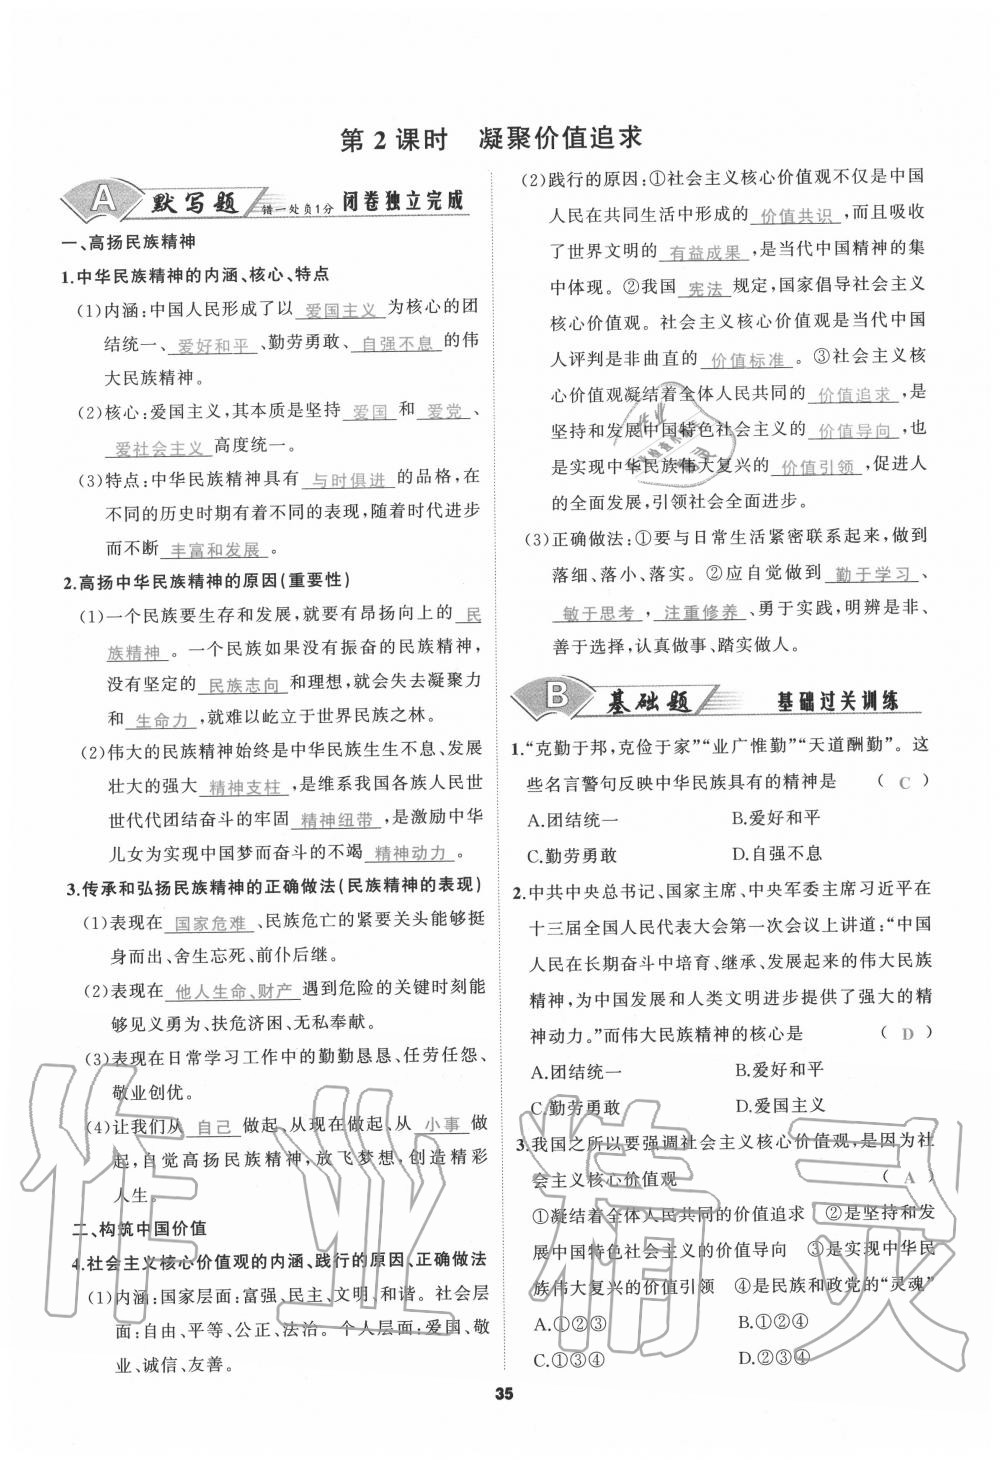 第2课时 凝聚价值追求
A 默写题 错一处负1分 闭卷独立完成
一、高扬民族精神
1.中华民族精神的内涵、核心、特点
(1)内涵:中国人民形成了以 爱国主义 为核心的团
结统一、爱好和平、勤劳勇敢、自强不息的伟
大民族精神。
(2)核心:爱国主义,其本质是坚持 爱国 和 爱党 、
爱社会主义 高度统一。
(3)特点:中华民族精神具有 与时俱进 的品格,在
不同的历史时期有着不同的表现,随着时代进步
而不断 丰富和发展 。
2.高扬中华民族精神的原因(重要性)
(1)一个民族要生存和发展,就要有昂扬向上的 民
族精神 。一个民族如果没有振奋的民族精神,
没有坚定的 民族志向 和理想,就会失去凝聚力
和 生命力 ,就难以屹立于世界民族之林。
(2)伟大的民族精神始终是中华民族生生不息、发展
壮大的强大 精神支柱 ,是维系我国各族人民世
世代代团结奋斗的牢固 精神纽带 ,是激励中华
儿女为实现中国梦而奋斗的不竭 精神动力 。
3.传承和弘扬民族精神的正确做法(民族精神的表现)
(1)表现在 国家危难 、民族危亡的紧要关头能够挺
身而出、舍生忘死、前仆后继。
(2)表现在 他人生命、财产 遇到危险的关键时刻能
够见义勇为、扶危济困、无私奉献。
(3)表现在日常学习工作中的勤勤恳恳、任劳任怨、
敬业创优。
(4)让我们从 自己 做起、从现在做起、从 小事 做
起,自觉高扬民族精神,放飞梦想,创造精彩
人生。
二、构筑中国价值
4.社会主义核心价值观的内涵、践行的原因、正确做法
(1)内涵:国家层面:富强、民主、文明、和谐。社会层
面:自由、平等、公正、法治。个人层面:爱国、敬
业、诚信、友善。
(2)践行的原因:①社会主义核心价值观不仅是中国
人民在共同生活中形成的 价值共识 ,而且吸收
了世界文明的 有益成果 ,是当代中国精神的集
中体现。②我国 宪法 规定,国家倡导社会主义
核心价值观。社会主义核心价值观是当代中国
人评判是非曲直的 价值标准 。③社会主义核
心价值观凝结着全体人民共同的 价值追求 ,是
坚持和发展中国特色社会主义的 价值导向 ,也
是实现中华民族伟大复兴的 价值引领 ,促进人
的全面发展,引领社会全面进步。
(3)正确做法:①要与日常生活紧密联系起来,做到
落细、落小、落实。②应自觉做到 勤于学习 、
敏于思考 , 注重修养 、勇于实践,明辨是非、
善于选择,认真做事、踏实做人。
B 基础题 基础过关训练
1.“克勤于邦,克俭于家”“业广惟勤”“天道酬勤”。这
些名言警句反映中华民族具有的精神是 ( C )
A.团结统一 B.爱好和平
C.勤劳勇敢 D.自强不息
2.中共中央总书记、国家主席、中央军委主席习近平在
十三届全国人民代表大会第一次会议上讲道:“中国
人民在长期奋斗中培育、继承、发展起来的伟大民族
精神,为中国发展和人类文明进步提供了强大的精
神动力。”而伟大民族精神的核心是 ( D )
A.团结统一 B.爱好和平
C.勤劳勇敢 D.爱国主义
3.我国之所以要强调社会主义核心价值观,是因为社
会主义核心价值观 ( A )
①凝结着全体人民共同的价值追求 ②是坚持和发
展中国特色社会主义的价值导向 ③是实现中华民
族伟大复兴的价值引领 ④是民族和政党的“灵魂”
A.①②③ B.①②④
C.①③④ D.②③④
35
作业精灵